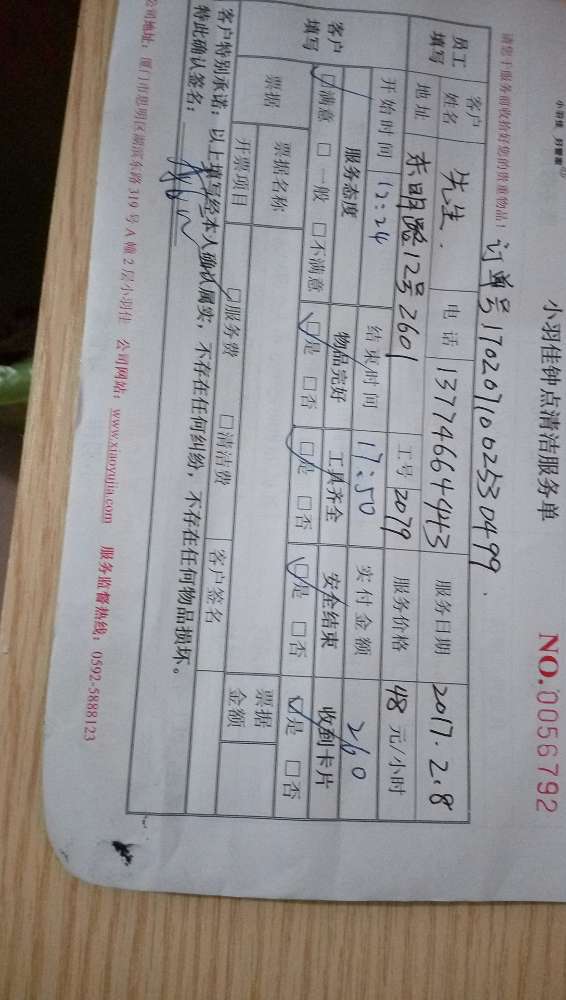 小羽佳 好管家
小羽佳钟点清洁服务单 NO.0056792
请您于服务前收拾好您的贵重物品！ 订单号170207100253 0499.
员工填写 客户姓名 先生. 电话 13774664443 服务日期 2017.2.8
地址 东明路12号2601 工号 2079 服务价格 48 元/小时
客户填写 开始时间 12:24 结束时间 17:50 实付金额 260
服务态度 物品完好 工具齐全 安全结束 收到卡片
☑满意 □一般 □不满意 ☑是 □否 ☑是 □否 ☑是 □否 ☑是 □否
票据 票据名称 □服务费 □清洁费 票据金额
开票项目 客户签名
客户特别承诺：以上填写经本人确认属实，不存在任何纠纷，不存在任何物品损坏。
特此确认签名：
公司地址：厦门市思明区湖滨东路 319 号 A 幢 2 层小羽佳 公司网站：www.xiaoyujia.com 服务监督热线：0592-5888123